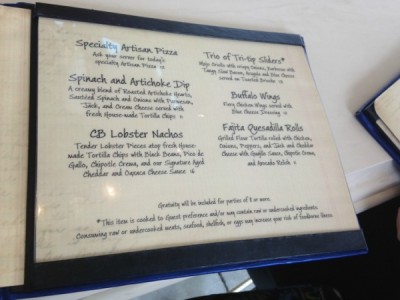 Specialty Artisan Pizza
Ask your server for today's
specialty Artisan Pizza
Spinach and Artichoke Dip
A creamy blend of Roasted Artichoke Hearts,
Sautéed Spinach and Onions with Parmesan,
Jack, and Cream Cheese served with
fresh House-made Tortilla Chips
CB Lobster Nachos
Tender Lobster Pieces atop fresh House-
made Tortilla Chips with Black Beans, Pico de
Gallo, Chipotle Crema, and our Signature Aged
Cheddar and Oaxaca Cheese Sauce 16
Trio of Tri-tip Sliders*
with crispy Onions, with
Tangy Bacon, Arugula and Blue Cheese
served on Toasted Brioche
Buffalo Wings
Fiery Chicken Wings served with
Blue Cheese Dressing
Fajita Quesadilla Rolls
Grilled Flour Tortilla rolled with Chicken,
Onions, Peppers, and Jack and Cheddar
Cheese with Sauce, Chipotle Crema,
and Avocado Relish
Gratuity will be included for parties of 8 or more.
*This item is cooked to Guest preference and/or may contain raw or undercooked ingredients.
Consuming raw or undercooked meats, seafood, shellfish, or eggs may increase your risk of foodborne illness.